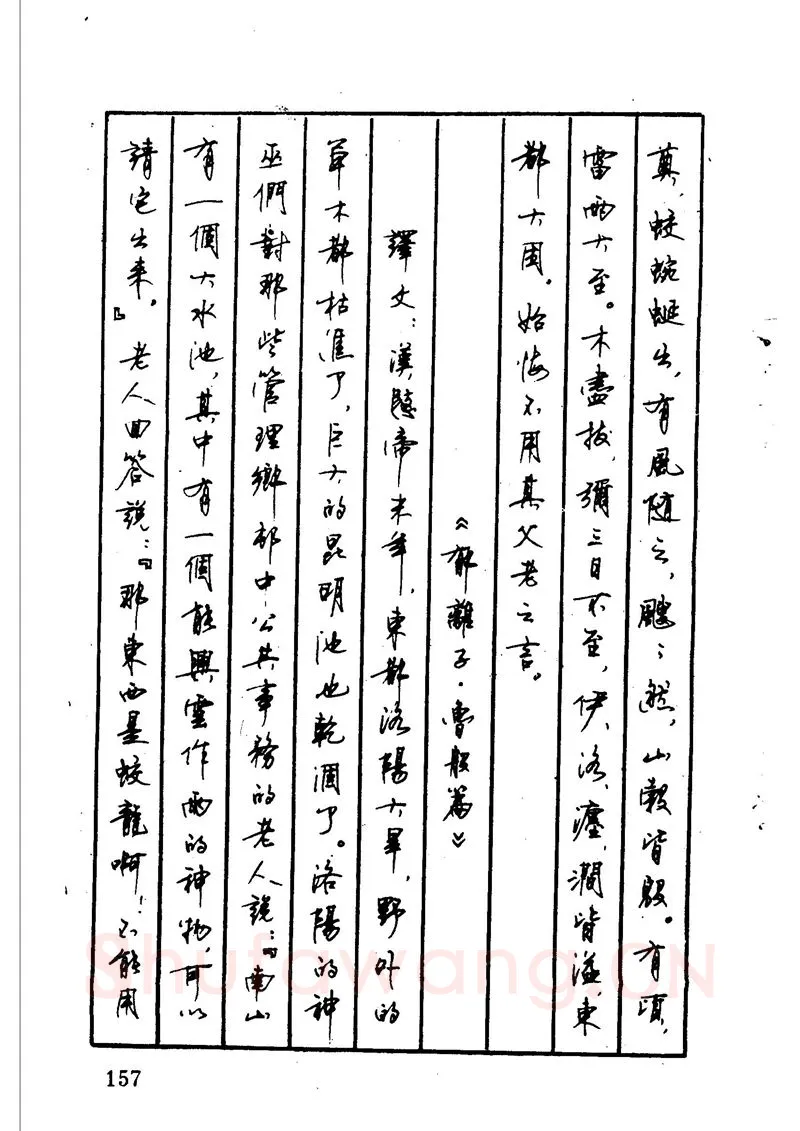 奠,蛟蜿蜒出,有風隨之,飇飇然,山穀皆殷。有頃,
雷雨大至。木盡拔,彌三日不至,伊、洛、瀍、澗皆溢,東
都大困。始悔不用其父老之言。
《郁離子·魯般篇》
譯文:漢愍帝末年,東都洛陽大旱,野外的
草木都枯焦了,巨大的昆明池也乾涸了。洛陽的神
巫們對那些管理鄉都中公共事務的老人說:『南山
有一個大水池,其中有一個能興雲作雨的神物,可以
請它出來。』老人回答說:『那東西是蛟龍啊!不能用
157
Shufawang.CN